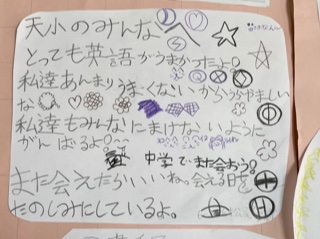 天小のみんなへ
とっても英語がうまかったよ!
私達あんまりうまくなないからうらやましい
な
私達もみんなにまけないように
がんばるよ!
中学でまた会おう!
また会えたらいいね。会える日を
たのしみにしているよ。